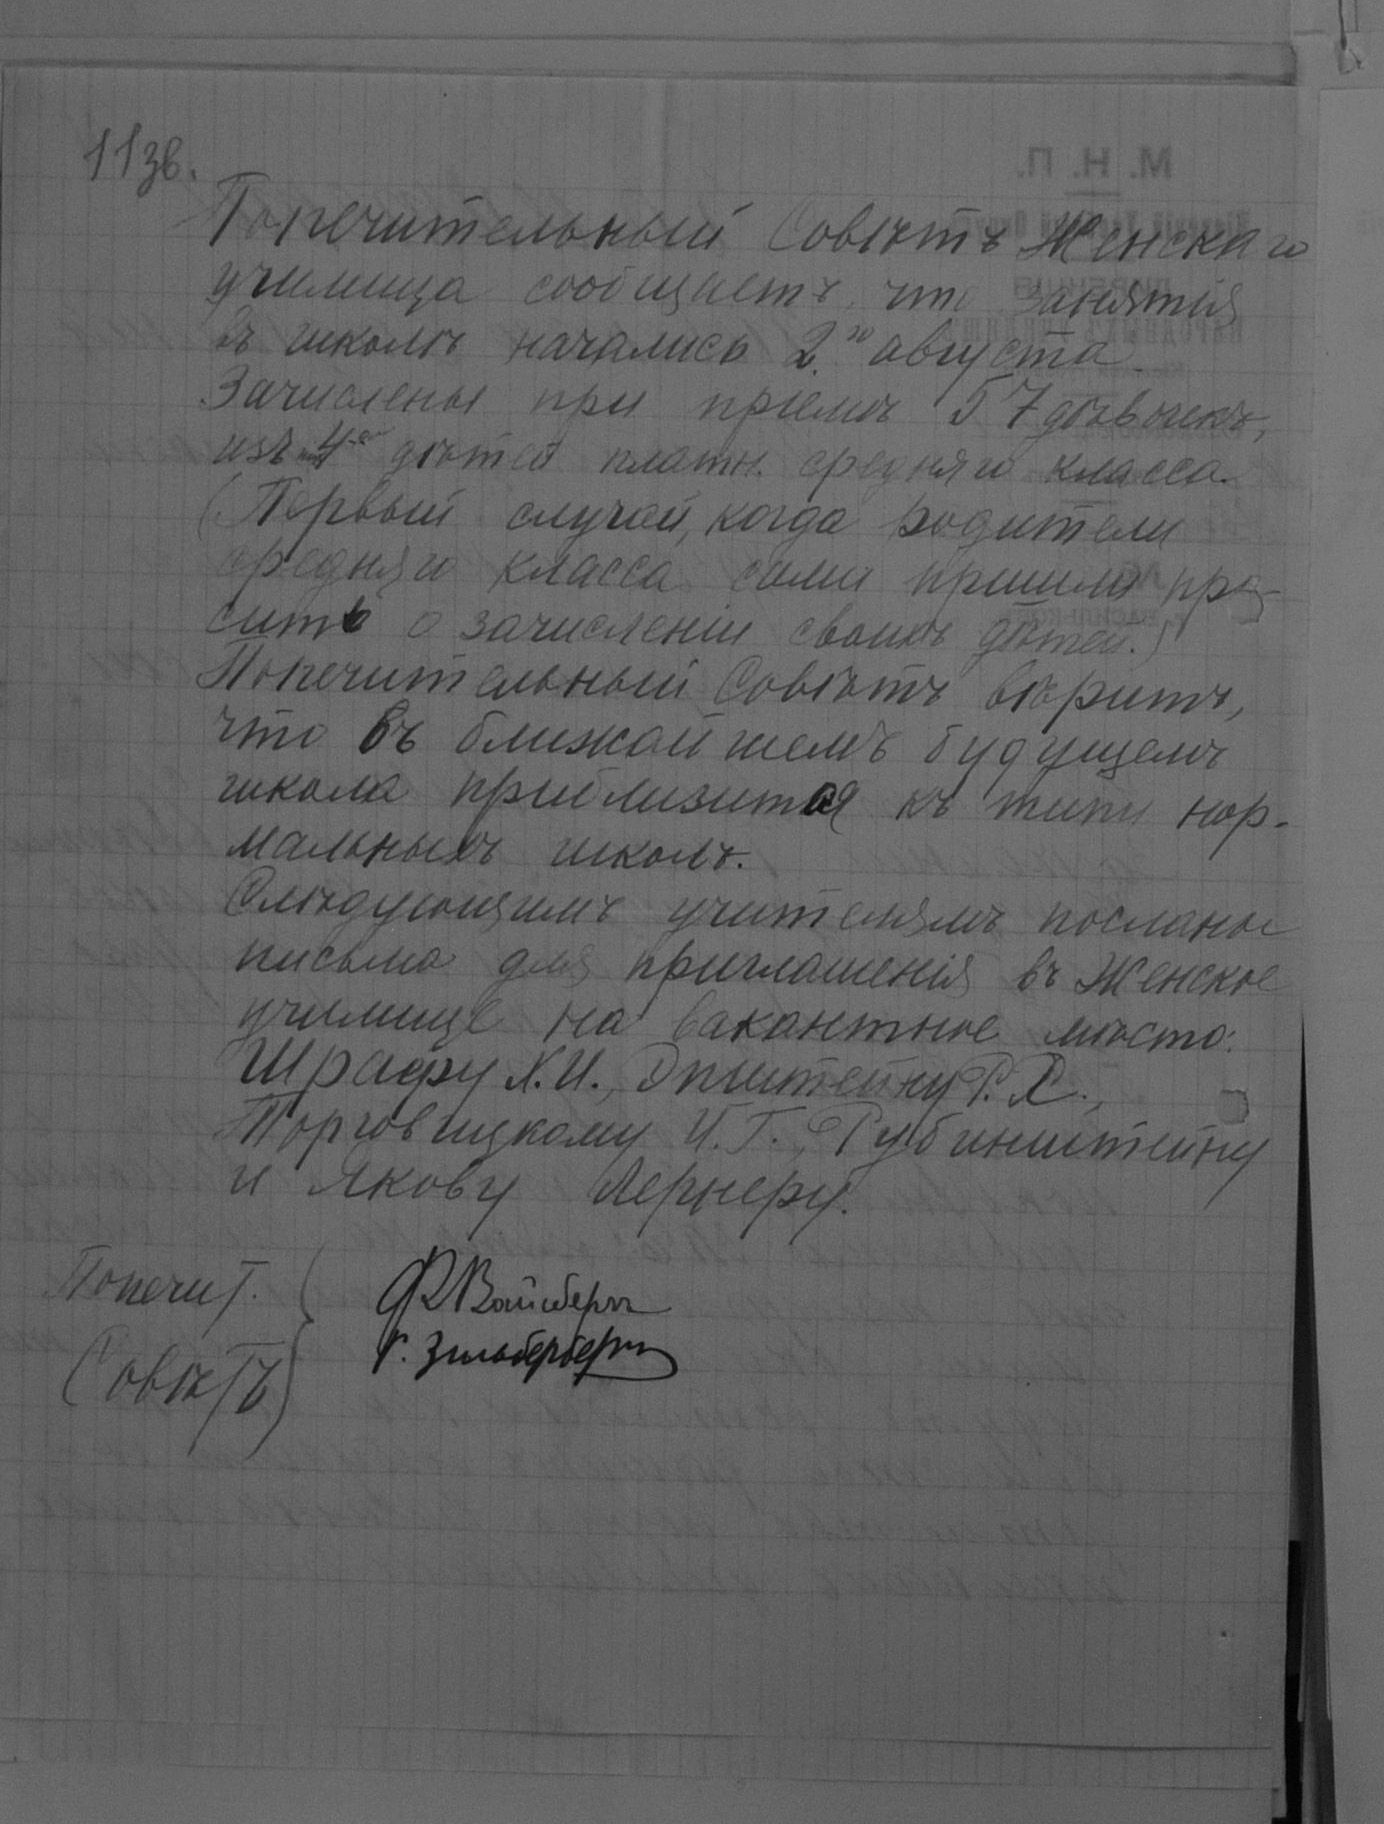 11зв.
Попечительный Совѣтъ Женскаго
училища сообщаетъ, что занятія
въ школѣ начались 2.го августа.
Зачислены при пріемѣ 57 дѣвочекъ,
изъ 4е дѣтей платн. средняго класса.
(Первый случай, когда родители
средняго класса сами пришли про-
сить о зачисленіи своихъ дѣтей.)
Попечительный Совѣтъ вѣритъ,
что въ ближайшемъ будущемъ
школа приблизится къ типу нор-
мальныхъ школъ.
Слѣдующимъ учителямъ посланы
письма для приглашенія въ Женское
училище на вакантное мѣсто:
Шрафу Х.И., Эпштейну Р. Х.,
Торговицкому И. Г., Рубинштейну
и Якову Лернеру.
Попечит. Вайсберг
Совѣтъ Г. Зильберберг
М. Н. П.